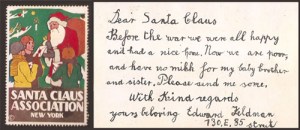 SANTA CLAUS
ASSOCIATION
NEW YORK
Dear Santa Claus
Before the war we were all happy
and had a nice home. Now we are poor,
and have no milk for my baby brother
and sister. Please send me some.
With Kind regards
yours loving Edward Feldman
730, E, 85
street